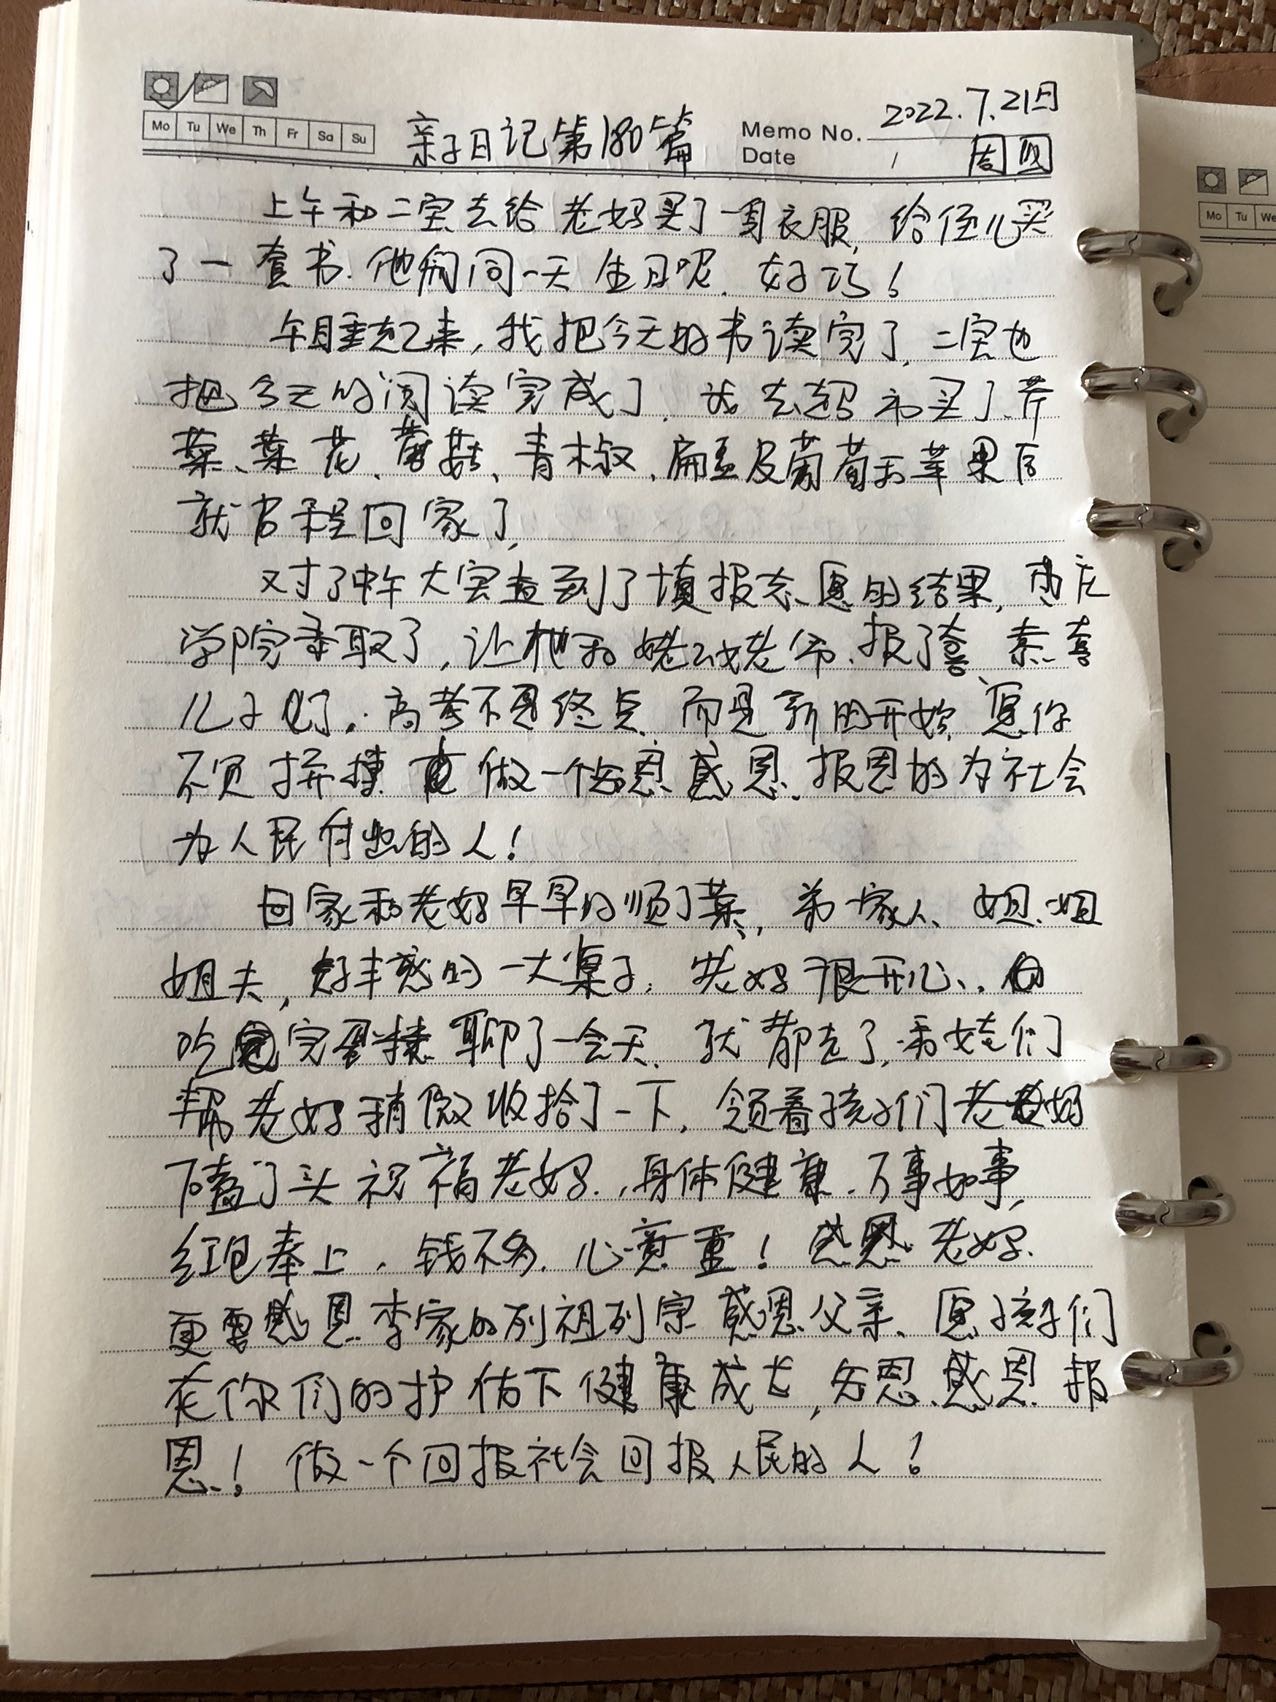 Mo Tu We Th Fr Sa Su
亲子日记第180篇
Memo No. 2022.7.21日
Date / 周四
上午和二宝去给老妈买了一身衣服, 给侄儿买
了一套书.他们同一天生日呢.好巧!
午睡起来,我把今天的书读完了.二宝也
把今天的阅读完成了.我去超市买了芹
菜、菜花、蘑菇、青椒.扁豆及葡萄和苹果后
就启程回家了,
对了中午大宝查到了填报志愿的结果,枣庄
学院录取了,让他和姥姥老爷.报了喜 恭喜
儿子了.高考不是终点.而是新的开始,愿你
不负拼搏 做一个知恩感恩.报恩的为社会
为人民付出的人!
回家和老妈早早的顺了菜, 弟一家人、姐.姐
姐夫, 好丰盛的一大桌子, 老妈很开心..
吃完蛋糕 聊了一会天.就都走了,和娃们
帮老妈稍微收拾了一下.领着孩子们老妈
磕了头 祝福老妈.,身体健康.万事如事,
红包奉上,钱不多.心意重! 感恩老妈.
更要感恩李家的列祖列宗 感恩父亲、愿孩子们
在你们的护佑下健康成长,知恩.感恩 报
恩! 做一个回报社会回报人民的人!
Mo Tu We